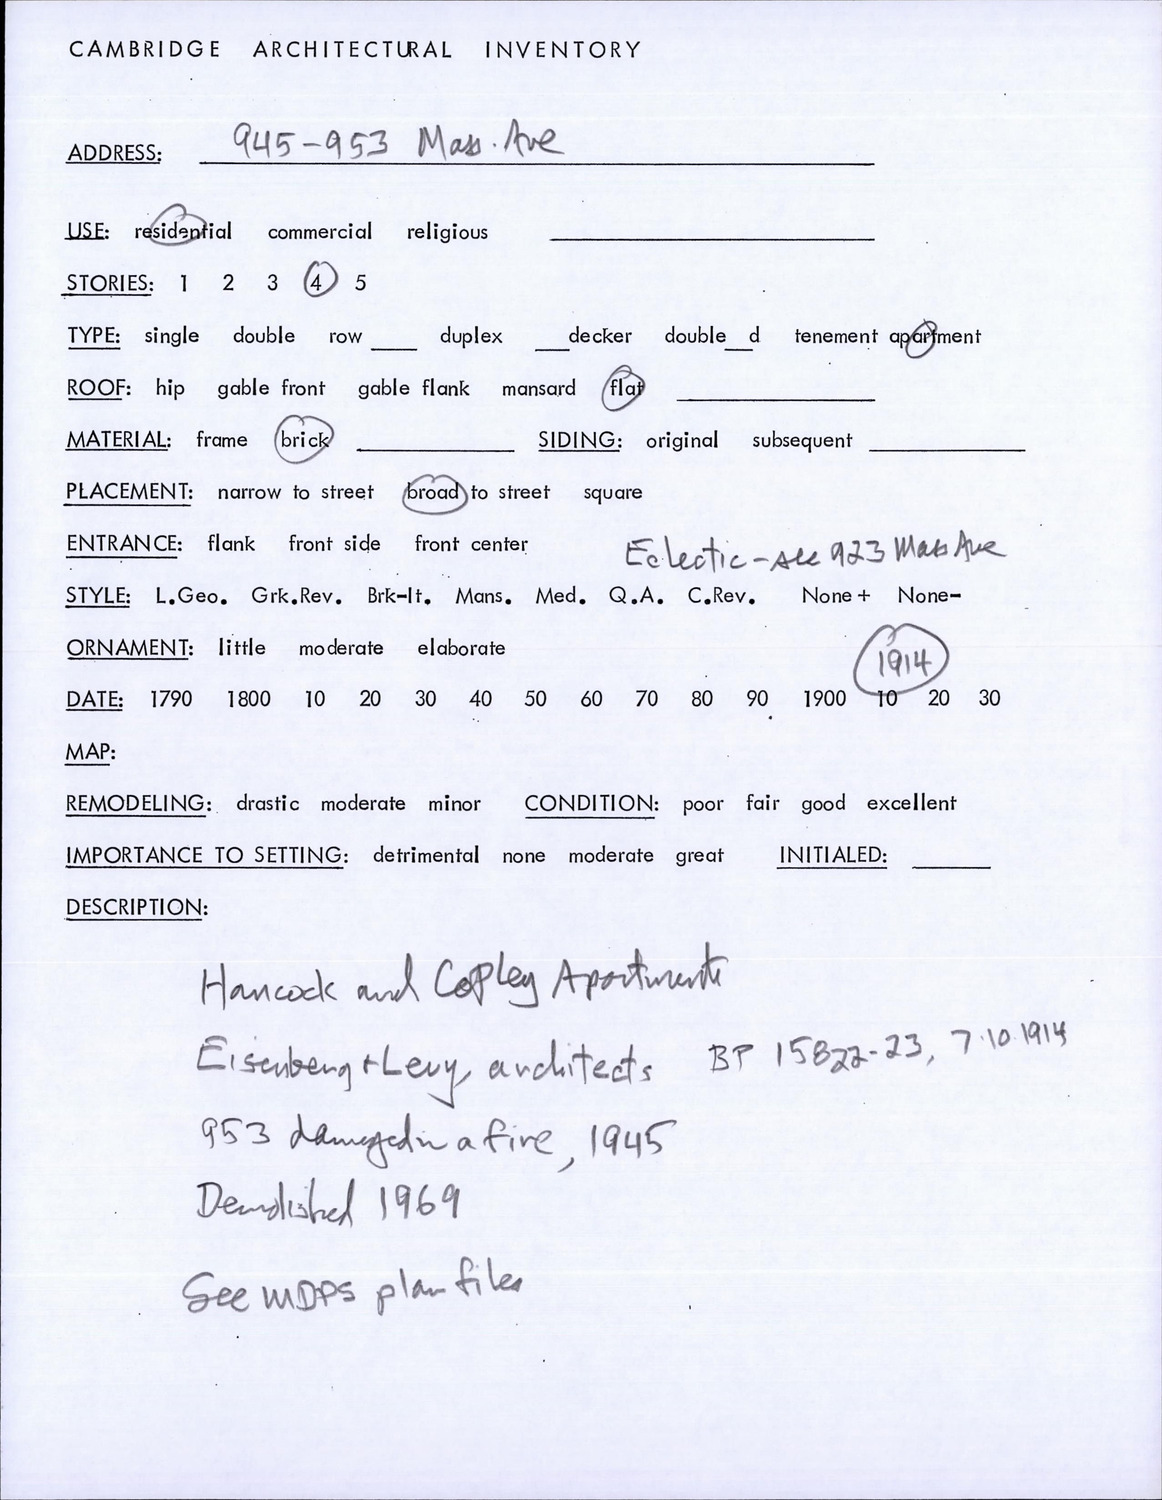 CAMBRIDGE ARCHITECTURAL INVENTORY
ADDRESS: 945-953 Mass. Ave
USE: residential commercial religious
STORIES: 1 2 3 4 5
TYPE: single double row ___ duplex ___decker double__d tenement apartment
ROOF: hip gable front gable flank mansard flat
MATERIAL: frame brick SIDING: original subsequent
PLACEMENT: narrow to street broad to street square
ENTRANCE: flank front side front center
Eclectic - see 923 Mass Ave
STYLE: L.Geo. Grk.Rev. Brk-It. Mans. Med. Q.A. C.Rev. None + None-
ORNAMENT: little moderate elaborate
1914
DATE: 1790 1800 10 20 30 40 50 60 70 80 90 1900 10 20 30
MAP:
REMODELING: drastic moderate minor CONDITION: poor fair good excellent
IMPORTANCE TO SETTING: detrimental none moderate great INITIALED:
DESCRIPTION:
Hancock and Copley Apartments
Eisenberg + Levy, architects BP 15822-23, 7.10.1914
953 damaged in a fire, 1945
Demolished 1969
See MDPS plan files